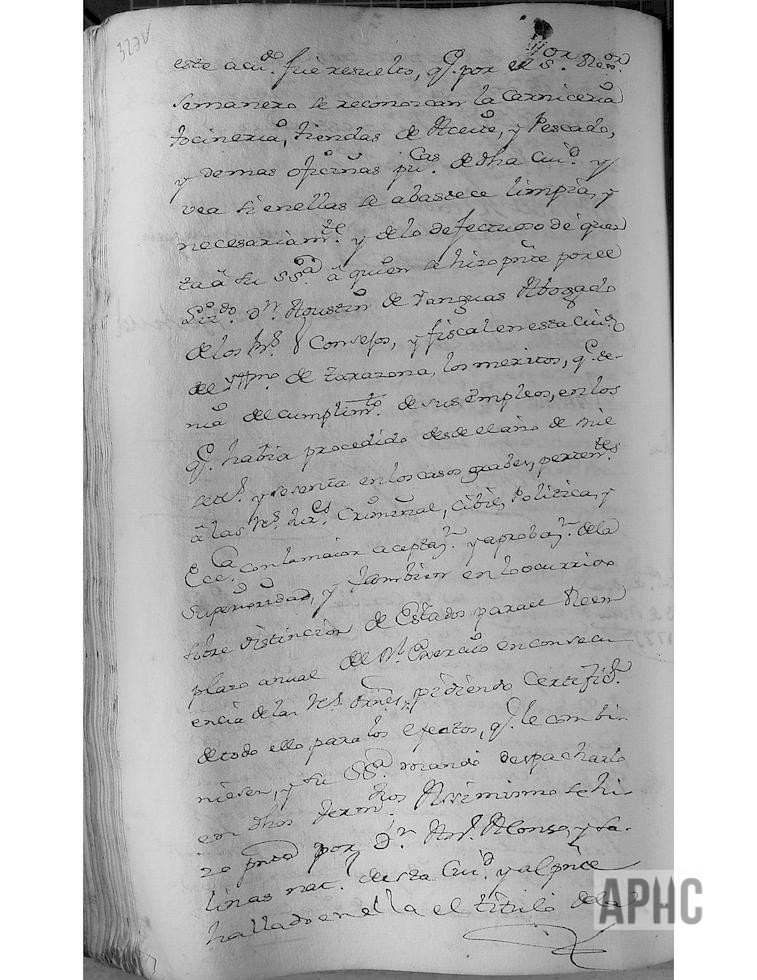 323V
este acu.do fue resuelto, q.e por el S.or Rex.or
semanero se reconoscan la Carniceria
tocineria, tiendas de Aceite, y Pescado,
y demas oficinas pu.cas de dha Ciu.d y
vea si en ellas se abastece limpia, y
necesariam.te y de lo defectuoso dé quen
ta â su SS.a â quien se hizo pñte por el
Liz.do Dn. Agustin de Tanguas Abogado
de los R.s Consejos, y fiscal en esta Ciu.d
de Tarazona, los meritos, q.e te-
nia del cumplim.to de sus empleos, en los
q.e habia procedido desde el año de mil
setec.s y sesenta en los casos grabes, perten.tes
â las R.s Criminal, Cibil, Politica, y
Ecc.ca con la maior aceptaz.n y aprobaz.n de la
Superioridad, y tambien en lo ocurrido
sobre distincion de Estados para el Reem
plazo anual del R.l Exercito en consecu
encia de las R.s Ordñes, pidiendo Certific.n
de todo ello para los efectos, q.e le combi-
niesen, y su SS.a mandó despacharlo
con dhos term.nos Assimismo se hi-
zo pñte por Dn. Ant.o Alonso, y Sa-
linas nat.l de esta Ciu.d y al pñte
hallado en ella el titulo de la
APHC